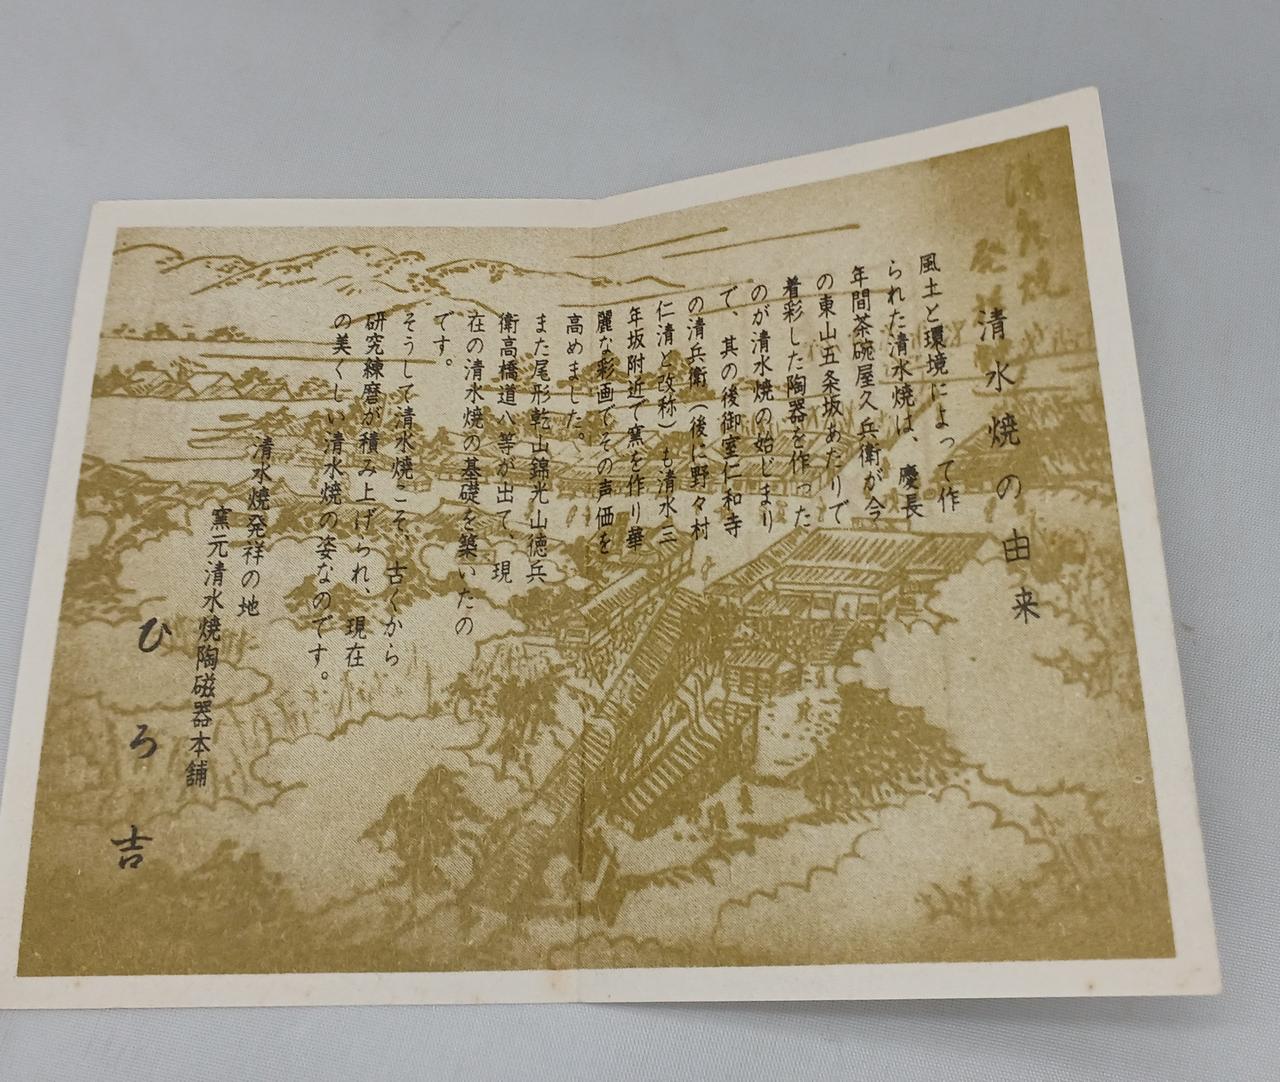 清水焼の由来
風土と環境によって作
られた清水焼は、慶長
年間茶碗屋久兵衛が今
の東山五条坂あたりで
着彩した陶器を作った
のが清水焼の始じまり
で、其の後御室仁和寺
の清兵衛（後に野々村
仁清と改称）も清水三
年坂附近で窯を作り華
麗な彩画でその声価を
高めました。
また尾形乾山錦光山徳兵
衛高橋道八等が出て、現
在の清水焼の基礎を築いたの
です。
そうして清水焼こそ、古くから
研究練磨が積み上げられ、現在
の美くしい清水焼の姿なのです。
清水焼発祥の地
窯元清水焼陶磁器本舗
ひろ吉